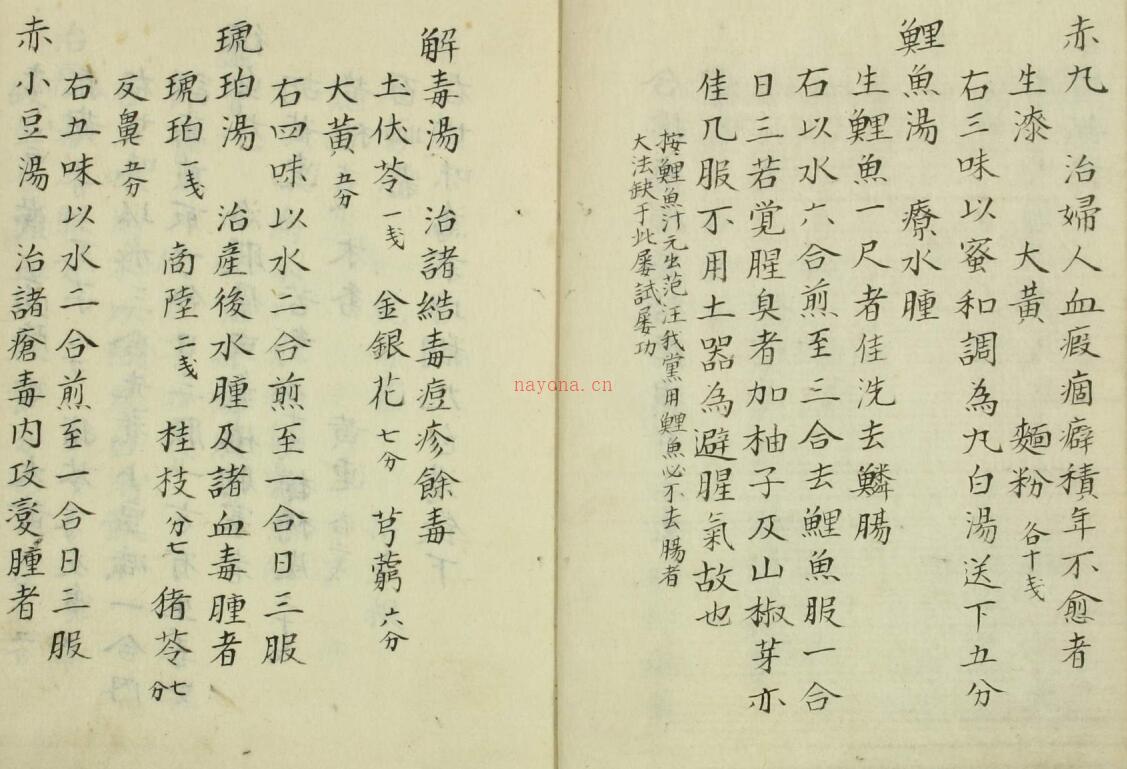 赤丸　治婦人血瘕痼癖積年不愈者
生漆　大黃　麵粉各十戔
右三味以蜜和調為丸白湯送下五分
鯉魚湯　療水腫
生鯉魚一尺者佳洗去鱗腸
右以水六合煎至三合去鯉魚服一合
日三若覚腥臭者加柚子及山椒芽亦
佳凡服不用土器為避腥氣故也
按鯉魚汁元出范汪我黨用鯉魚必不去腸者
大法缺于此屡試屡功
解毒湯　治諸結毒痘疹餘毒
土伏苓一戔　金銀花七分　芎藭六分
大黃五分
右四味以水二合煎至一合日三服
琥珀湯　治產後水腫及諸血毒腫者
琥珀一戔　商陸二戔　桂枝七分　猪苓七分
反鼻五分
右五味以水二合煎至一合日三服
赤小豆湯　治諸瘡毒內攻變腫者
nayona.cn